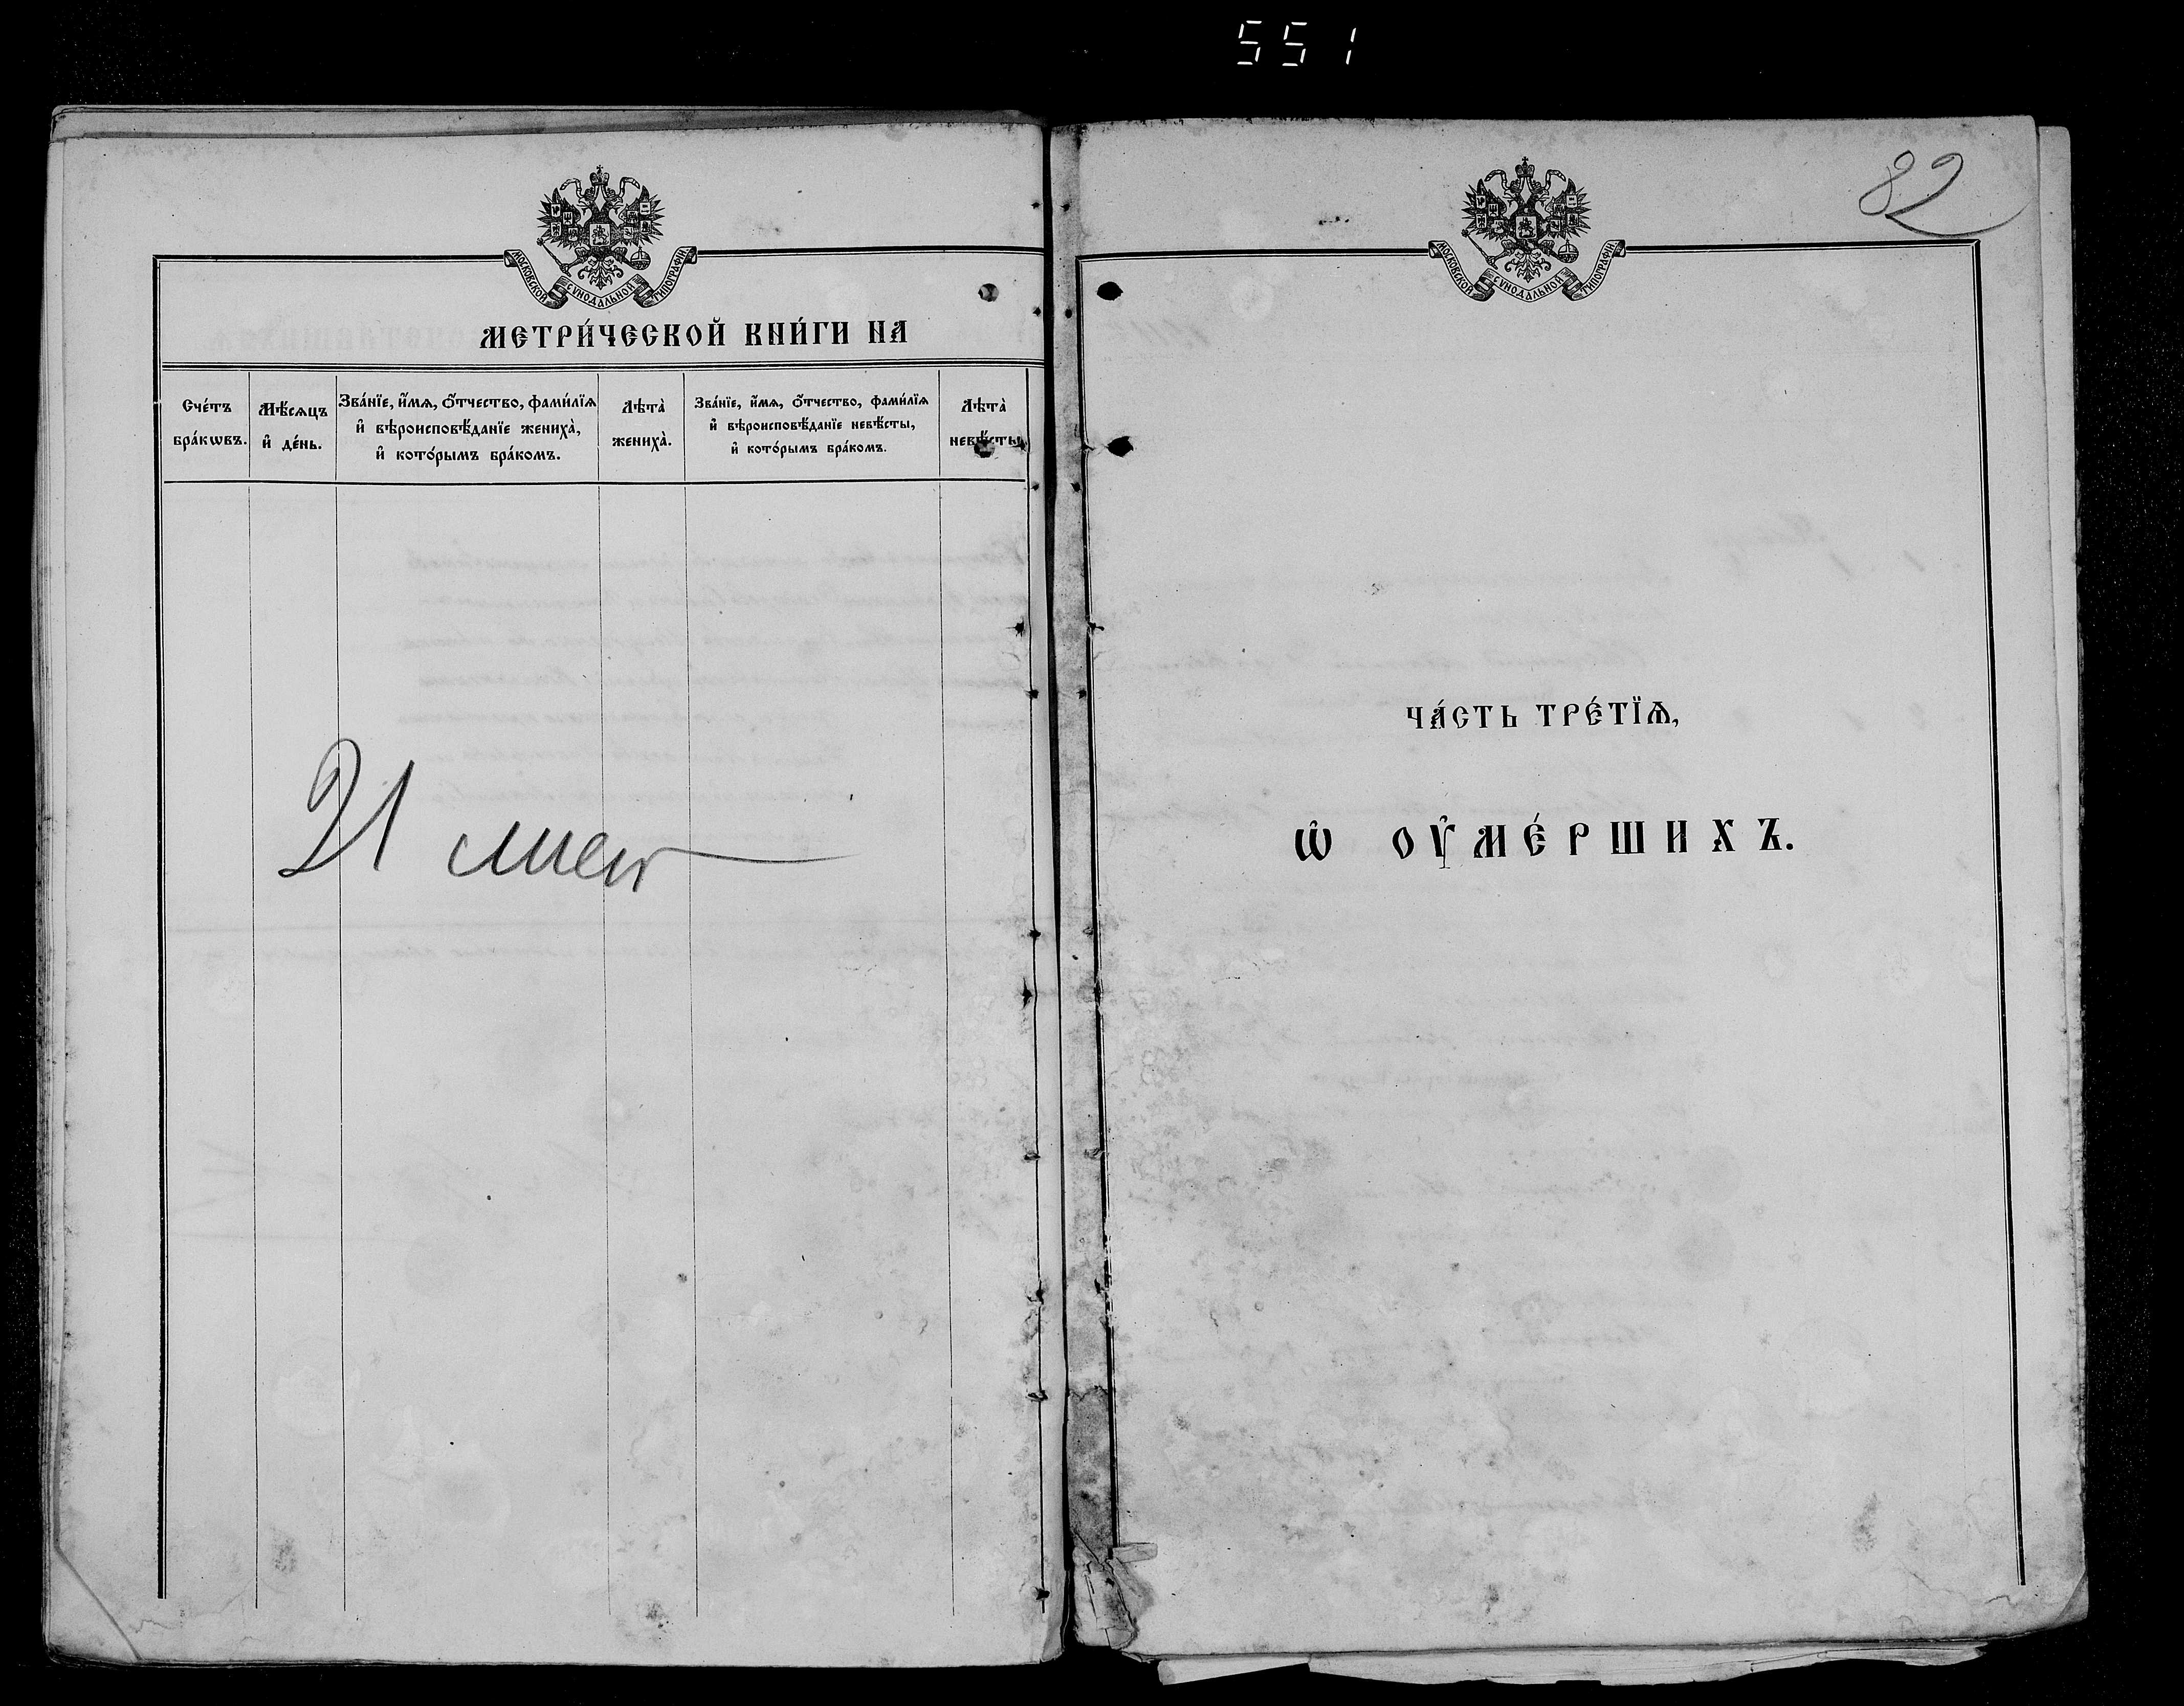 551
МОСКОВСКОЙ СѴНОДАЛЬНОЙ ТИПОГРАФІИ.
МЕТРИ́ЧЕСКОЙ КНИ́ГИ НА
Сче́тъ бра́кѡвъ.
Мѣ́сѧцъ и҆ де́нь.
Зва́нїе, и҆́мѧ, ѻ҆́тчество, фами́лїѧ
и҆ вѣроисповѣ́данїе жениха̀,
и҆ кото́рымъ бра́комъ.
Лѣта̀ жениха̀.
Зва́нїе, и҆́мѧ, ѻ҆́тчество, фами́лїѧ
и҆ вѣроисповѣ́данїе невѣ́сты,
и҆ кото́рымъ бра́комъ.
Лѣта̀ невѣ́сты.
21
82
МОСКОВСКОЙ СѴНОДАЛЬНОЙ ТИПОГРАФІИ.
ЧА́СТЬ ТРЕ́ТЇѦ,
Ѡ҆ ОУ҆МЕ́РШИХЪ.